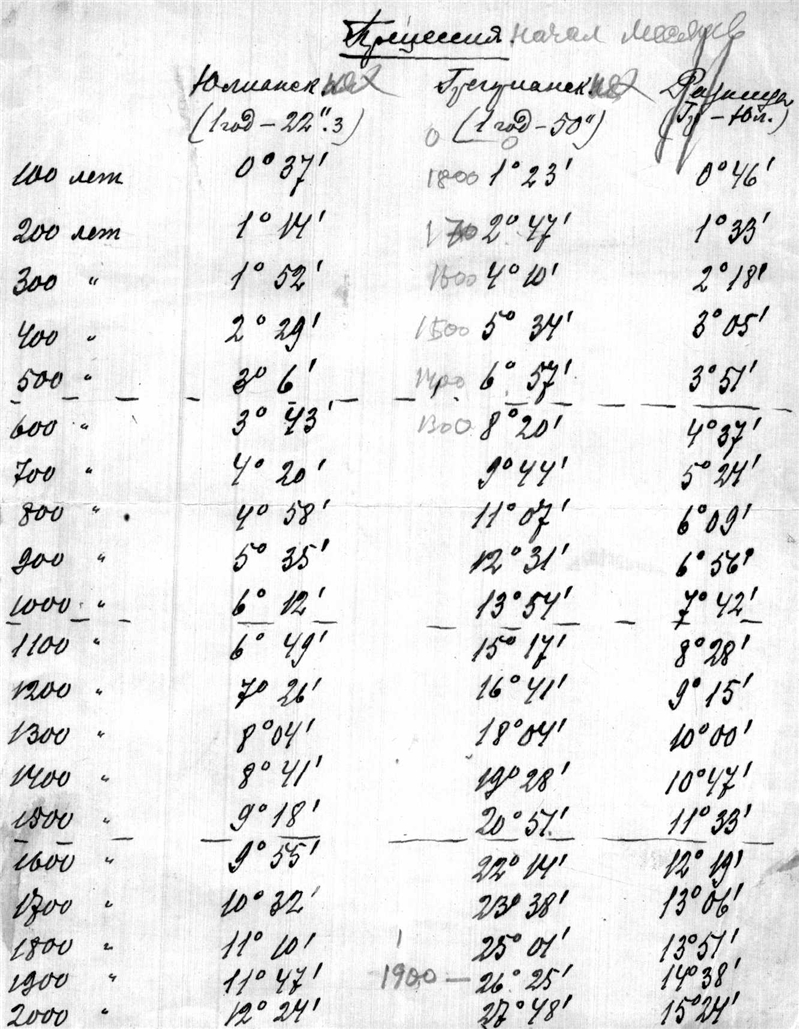 Прецессия начал месяцев
Юлианских Григорианских Разница
(1 год – 22".3) (1 год – 50") (Гр – Юл.)
0 0
100 лет 0° 37' 1800 1° 23' 0° 46'
200 лет 1° 14' 170 2° 47' 1° 33'
300 " 1° 52' 1600 4° 10' 2° 18'
400 " 2° 29' 1500 5° 34' 3° 05'
500 " 3° 6' 1400 6° 57' 3° 51'
600 " 3° 43' 1300 8° 20' 4° 37'
700 " 4° 20' 9° 44' 5° 24'
800 " 4° 58' 11° 07' 6° 09'
900 " 5° 35' 12° 31' 6° 56'
1000 " 6° 12' 13° 54' 7° 42'
1100 " 6° 49' 15° 17' 8° 28'
1200 " 7° 26' 16° 41' 9° 15'
1300 " 8° 04' 18° 04' 10° 00'
1400 " 8° 41' 19° 28' 10° 47'
1500 " 9° 18' 20° 51' 11° 33'
1600 " 9° 55' 22° 14' 12° 19'
1700 " 10° 32' 23° 38' 13° 06'
1800 " 11° 10' 25° 01' 13° 51'
1900 " 11° 47' 1900 — 26° 25' 14° 38'
2000 " 12° 24' 27° 48' 15° 24'